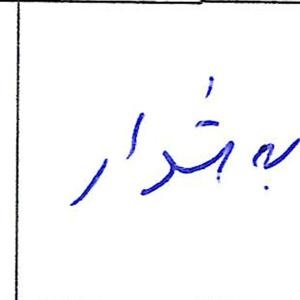 به هشدار